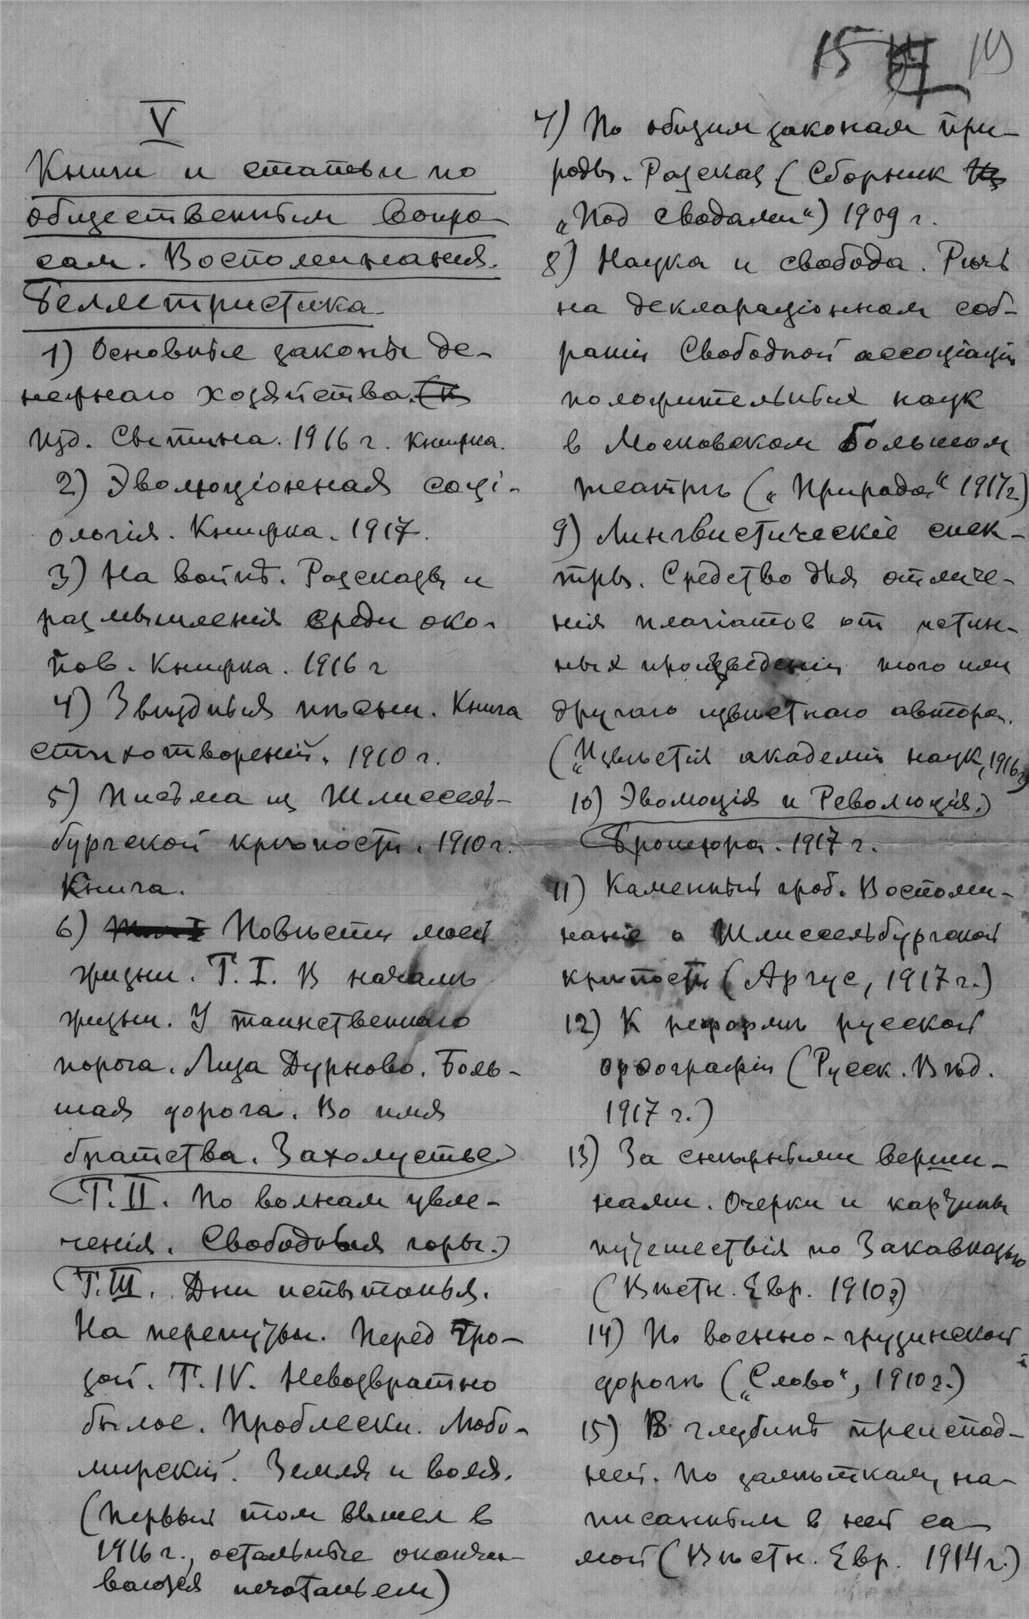 15 19
V
Книги и статьи по
общественным вопро-
сам. Воспоминания.
Беллетристика
1) Основные законы де-
нежнаго хозяйства.
Изд. Сытина. 1916 г. Книжка.
2) Эволюціонная соці-
ологія. Книжка. 1917.
3) На войнѣ. Разсказы и
размышленія среди око-
пов. Книжка. 1916 г
4) Звѣздныя пѣсни. Книга
стихотвореній. 1910 г.
5) Письма из Шлиссель-
бургской крѣпости. 1910 г.
Книга.
6) Повѣсти моей
жизни. Т. I. В началѣ
жизни. У таинственнаго
порога. Лиза Дурново. Боль-
шая дорога. Во имя
братства. Захолустье
Т. II. По волнам увле-
ченія. Свободныя горы.
Т. III. Дни испытанья.
На перепутьи. Перед гро-
зой. Т. IV. Невозвратно
былое. Проблески. Любо-
мирский. Земля и воля.
(Первый том вышел в
1916 г., остальные оканчи-
ваются печатаньем)
7) По общим законам при-
роды. Разсказ (Сборник
„Под сводами“) 1909 г.
8) Наука и свобода. Рѣчь
на деклараціонном соб-
раніи Свободной ассоціаціи
положительных наук
в Московском Большом
театрѣ („Природа“ 1917 г.)
9) Лингвистическіе спек-
тры. Средство для отличе-
нія плагіатов от истин-
ных произведеній того или
другого извѣстнаго автора.
(„Извѣстія академіи наук, 1916 г)
10) Эволюція и Революція.
Брошюра. 1917 г.
11) Каменный гроб. Воспоми-
наніе о Шлиссельбургской
крѣпости (Аргус, 1917 г.)
12) К реформѣ русской
орѳографіи (Русск. Вѣд.
1917 г.)
13) За снѣжными верши-
нами. Очерки и картины
путешествія по Закавказью
(Вѣстн. Евр. 1910 г)
14) По военно-грузинской
дорогѣ („Слово“, 1910 г.)
15) В глубинѣ преиспод-
ней. По замѣткам, на-
писанным в ней са-
мой (Вѣстн. Евр. 1914 г.)